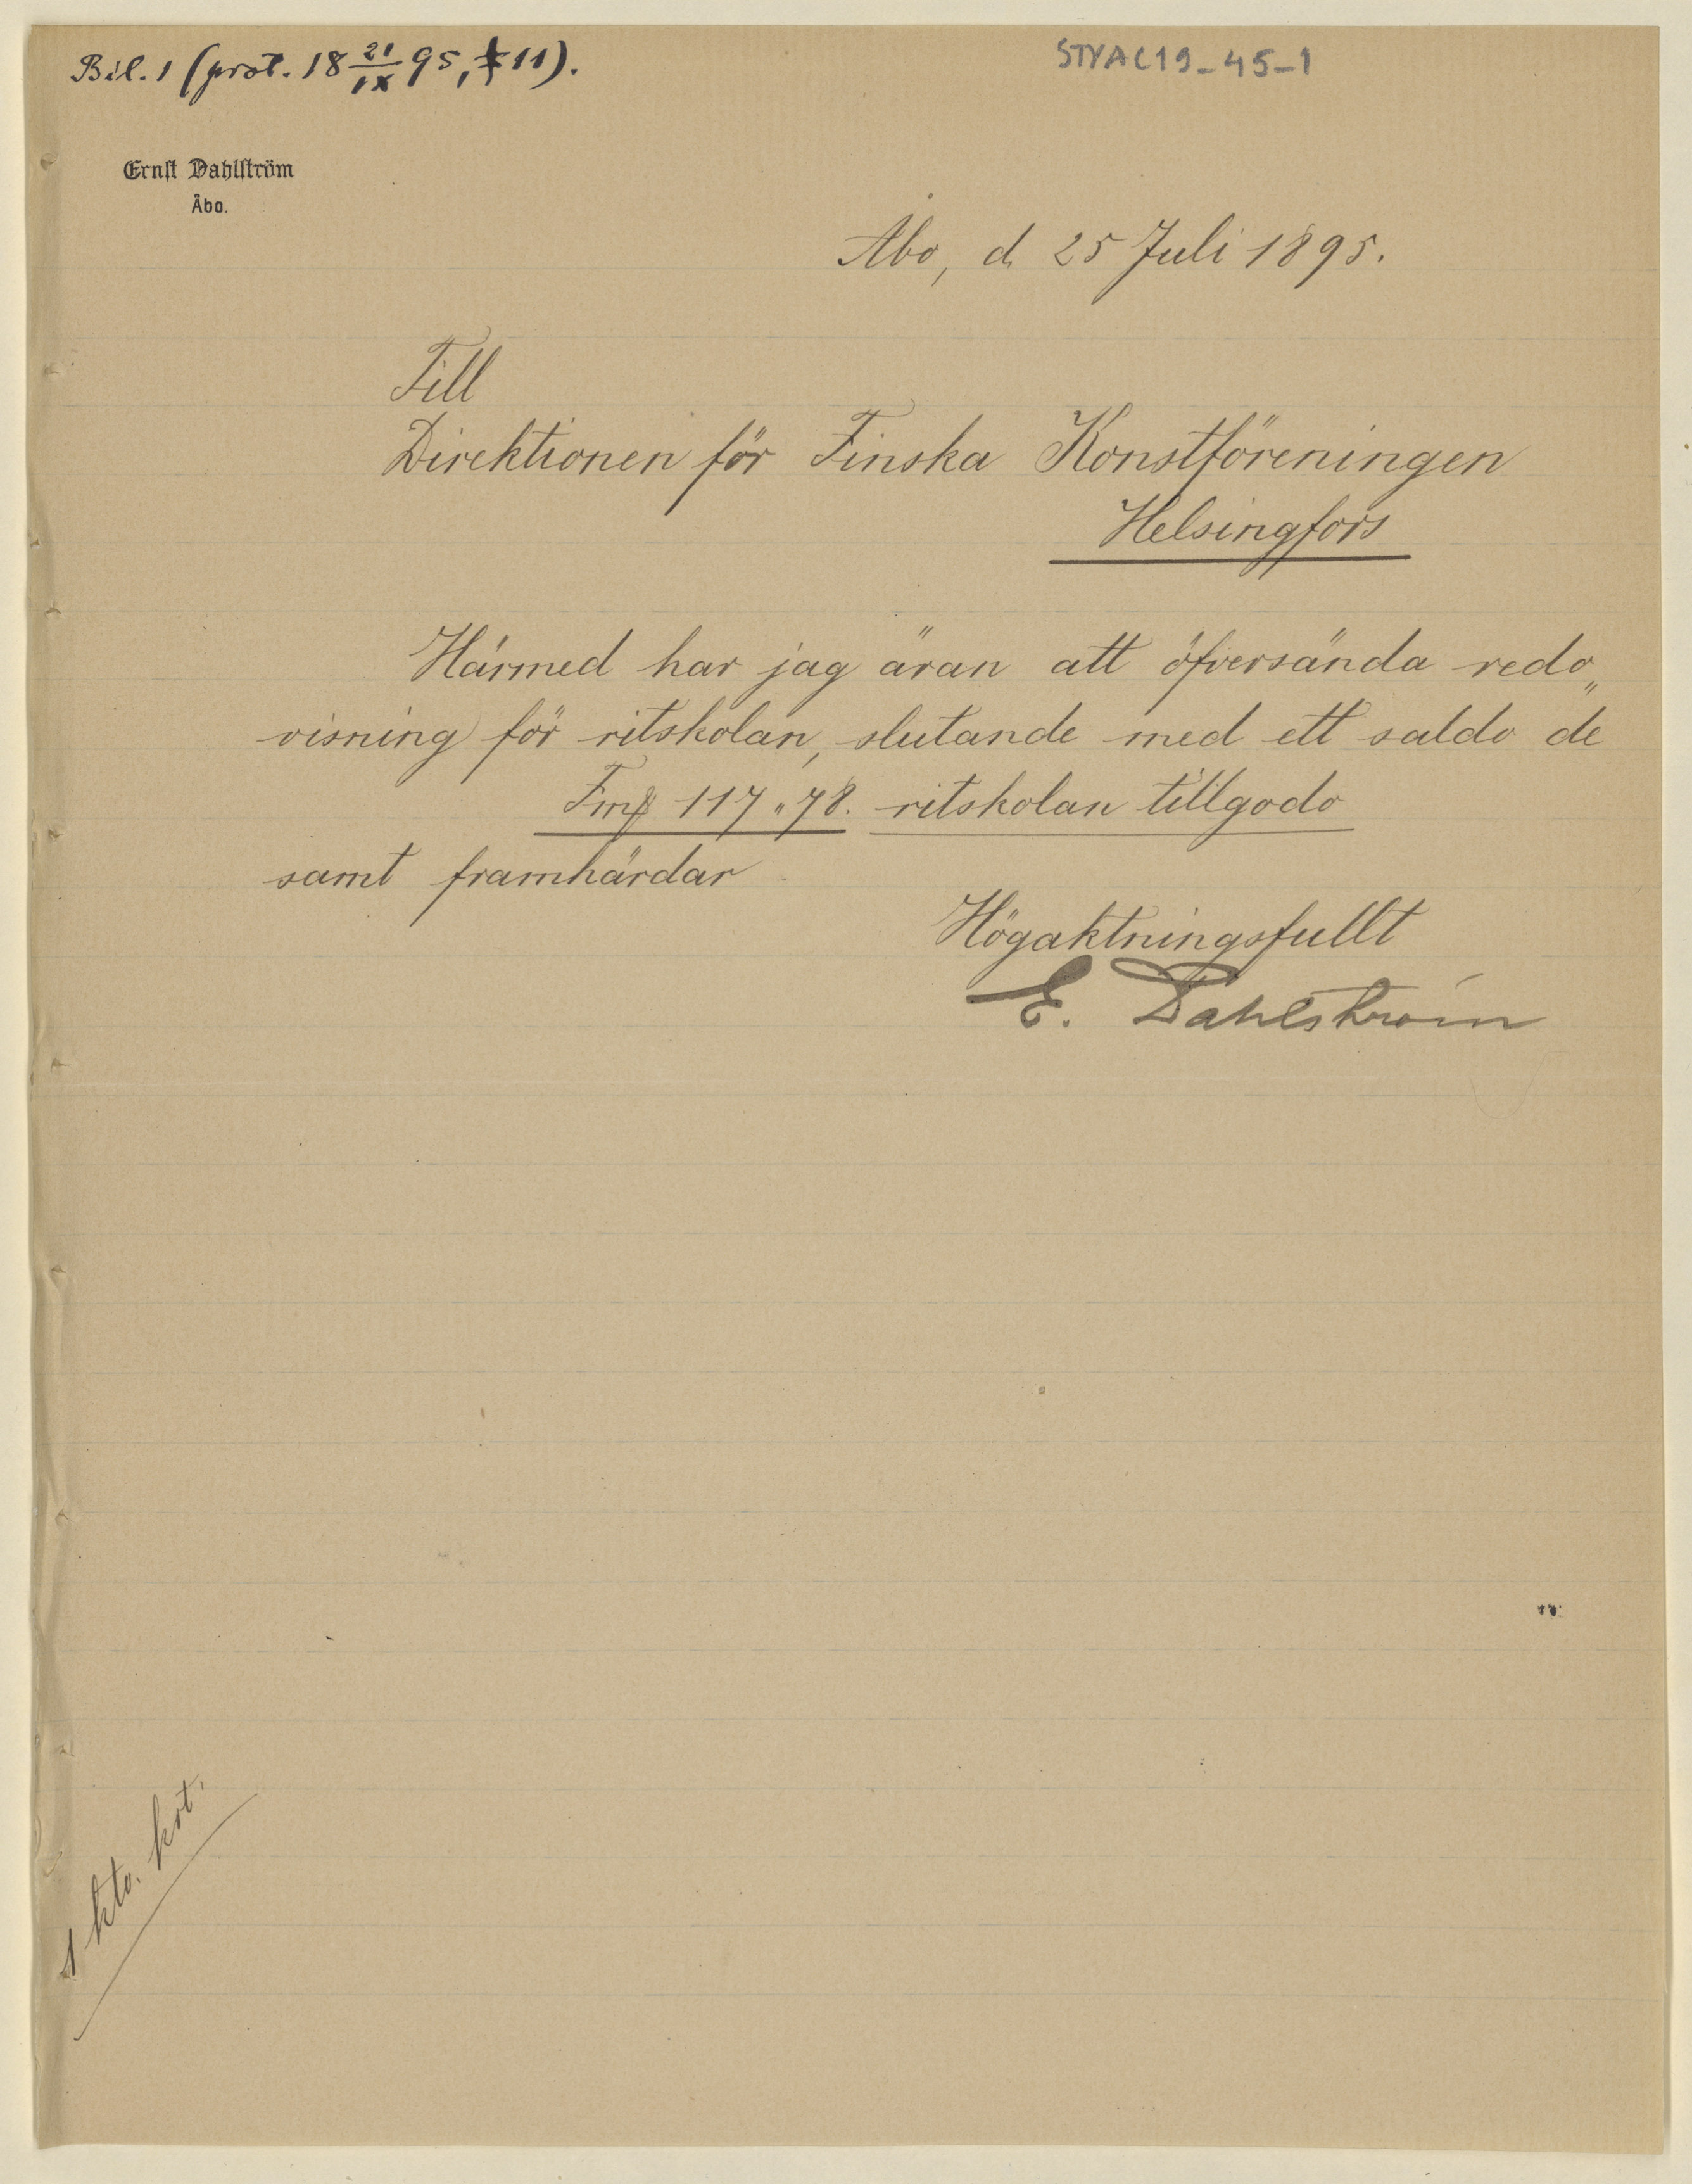 Bil. 1 (prot. 18 21/IX 95, § 11).
STYA C19-45-1
Ernst Dahlström
Åbo.
Åbo, d 25 Juli 1895.
Till
Direktionen för Finska Konstföreningen
Helsingfors
Härmed har jag äran att öfversända redo„
visning för ritskolan, slutande med ett saldo de
Fmk 117 „ 78. ritskolan tillgodo
samt framhärdar
Högaktningsfullt
E. Dahlström
1 kto. krt.